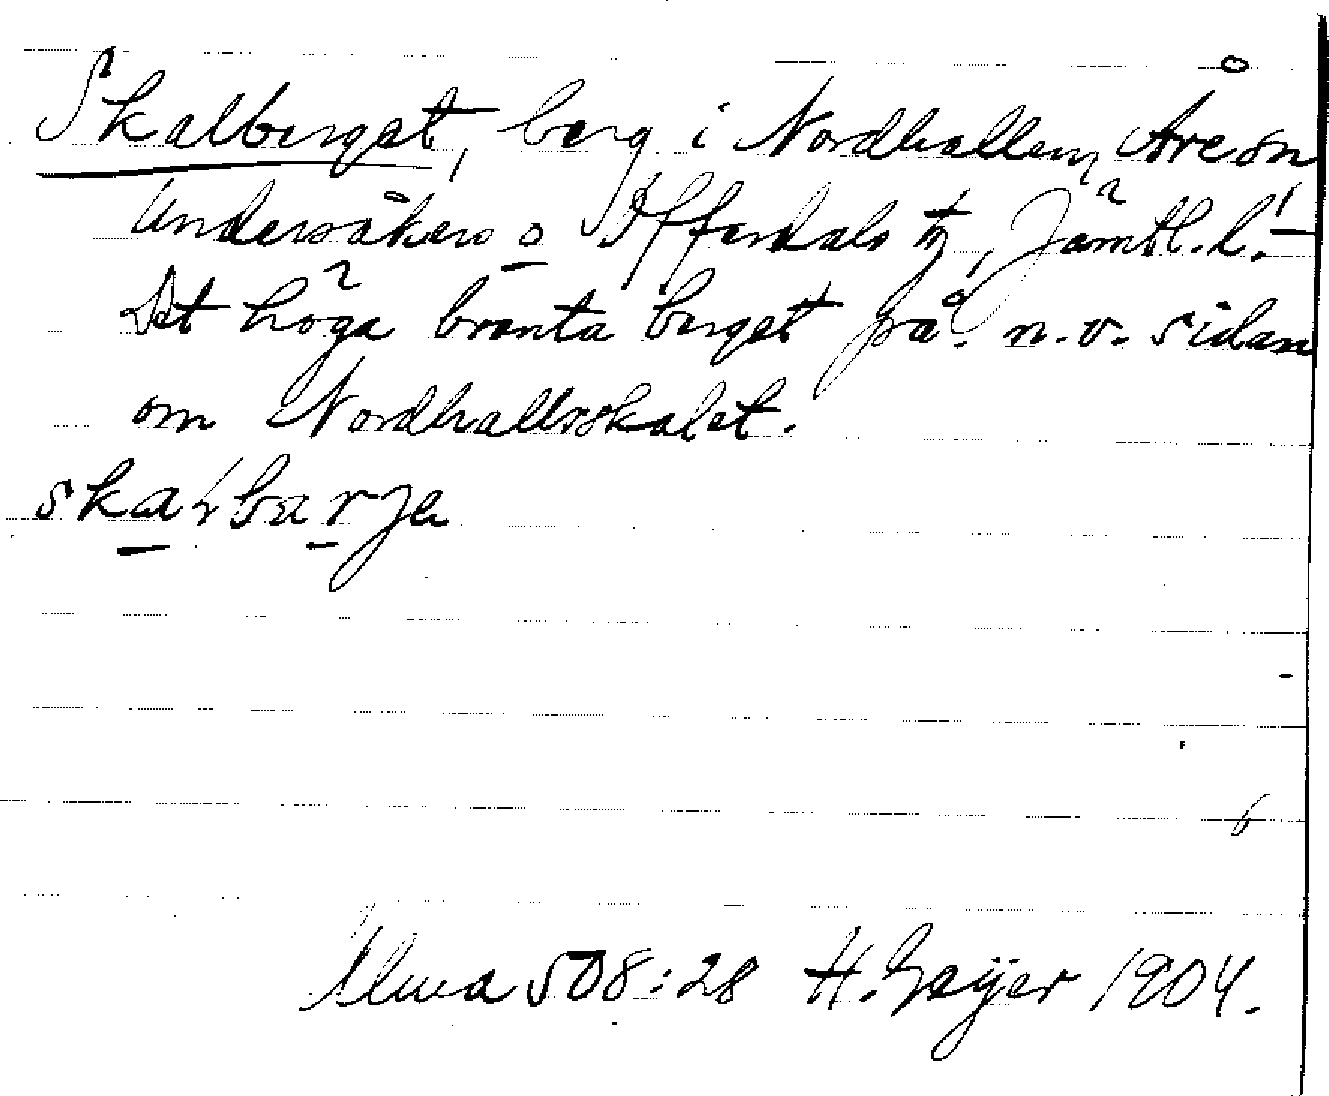 Skalberget, berg i Nordhallen, Åre sn
Undersåkers o Offerdals tg, Jämtl. l. –
Det höga branta berget på n.v. sidan
om Nordhallsskalet.
H. Geijer 1904.